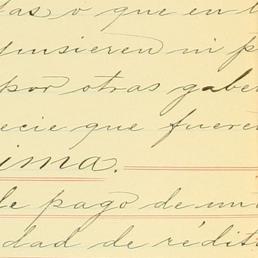 tas o que en l
quisieren ni p
por otras gabe
ecie que fuere
ima.
de pago de un
dad de rédit